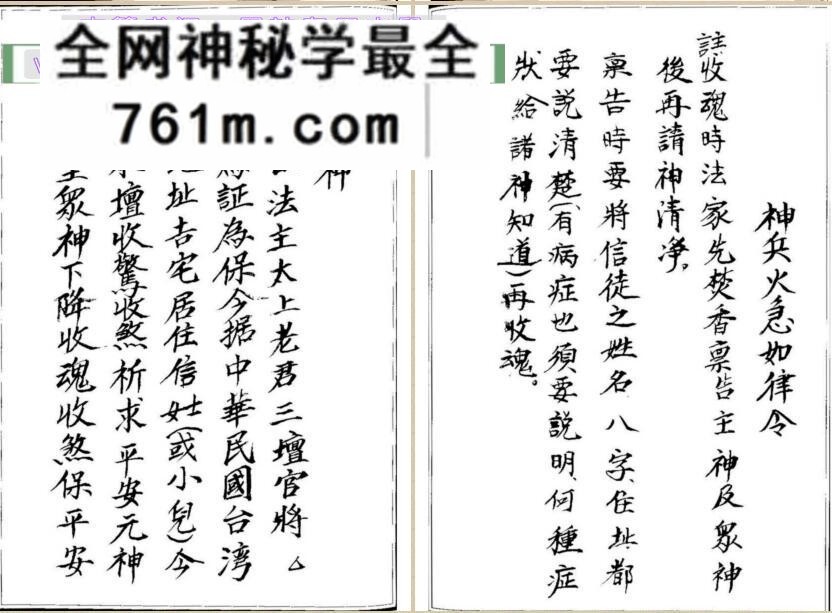 全网神秘学最全
761m.com
神兵火急如律令
註收魂時法家先焚香禀告主神及眾神
後再請神清净。
禀告時要將信徒之姓名八字住址都
要説清楚(有病症也須要説明何種症
狀給諸神知道)再收魂。
神
法主太上老君三壇官將
証為保今据中華民國台湾
址吉宅居住信女士(或小兒)今
壇收驚收煞祈求平安元神
眾神下降收魂收煞保平安